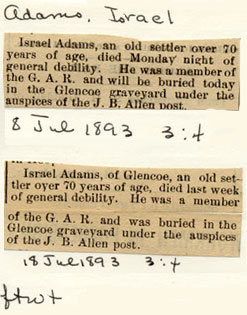 Adams, Israel
Israel Adams, an old settler over 70
years of age, died Monday night of
general debility. He was a member
of the G. A. R. and will be buried today
in the Glencoe graveyard under the
auspices of the J. B. Allen post.
8 Jul 1893 3:4
Israel Adams, of Glencoe, an old set-
tler over 70 years of age, died last week
of general debility. He was a member
of the G. A. R. and was buried in the
Glencoe graveyard under the auspices
of the J. B. Allen post.
18 Jul 1893 3:4